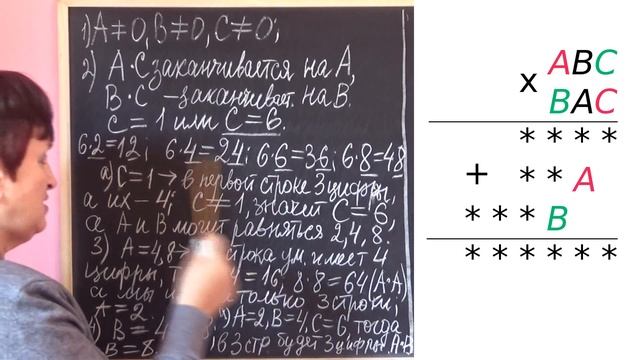 1) A ≠ 0, B ≠ 0, C ≠ 0;
2) A·C заканчивается на A,
B·C – заканчивает. на B.
C = 1 или C = 6.
6·2=12; 6·4=24; 6·6=36; 6·8=48
а) C=1 → в первой строке 3 цифры,
а их – 4; C ≠ 1, значит C = 6,
а A и B могут равняться 2, 4, 8.
3) A=4,8 → строка ум. имеет 4
цифры, 4 = 16, 8·8=64 (A·A)
а мы только 3 строки,
A = 2.
B = 4 A=2, B=4, C=6, тогда
B = 8. в 3 стр. будет 3 цифры A·B
ABC
x BAC
* * * *
+ * * A
* * * B
* * * * * *